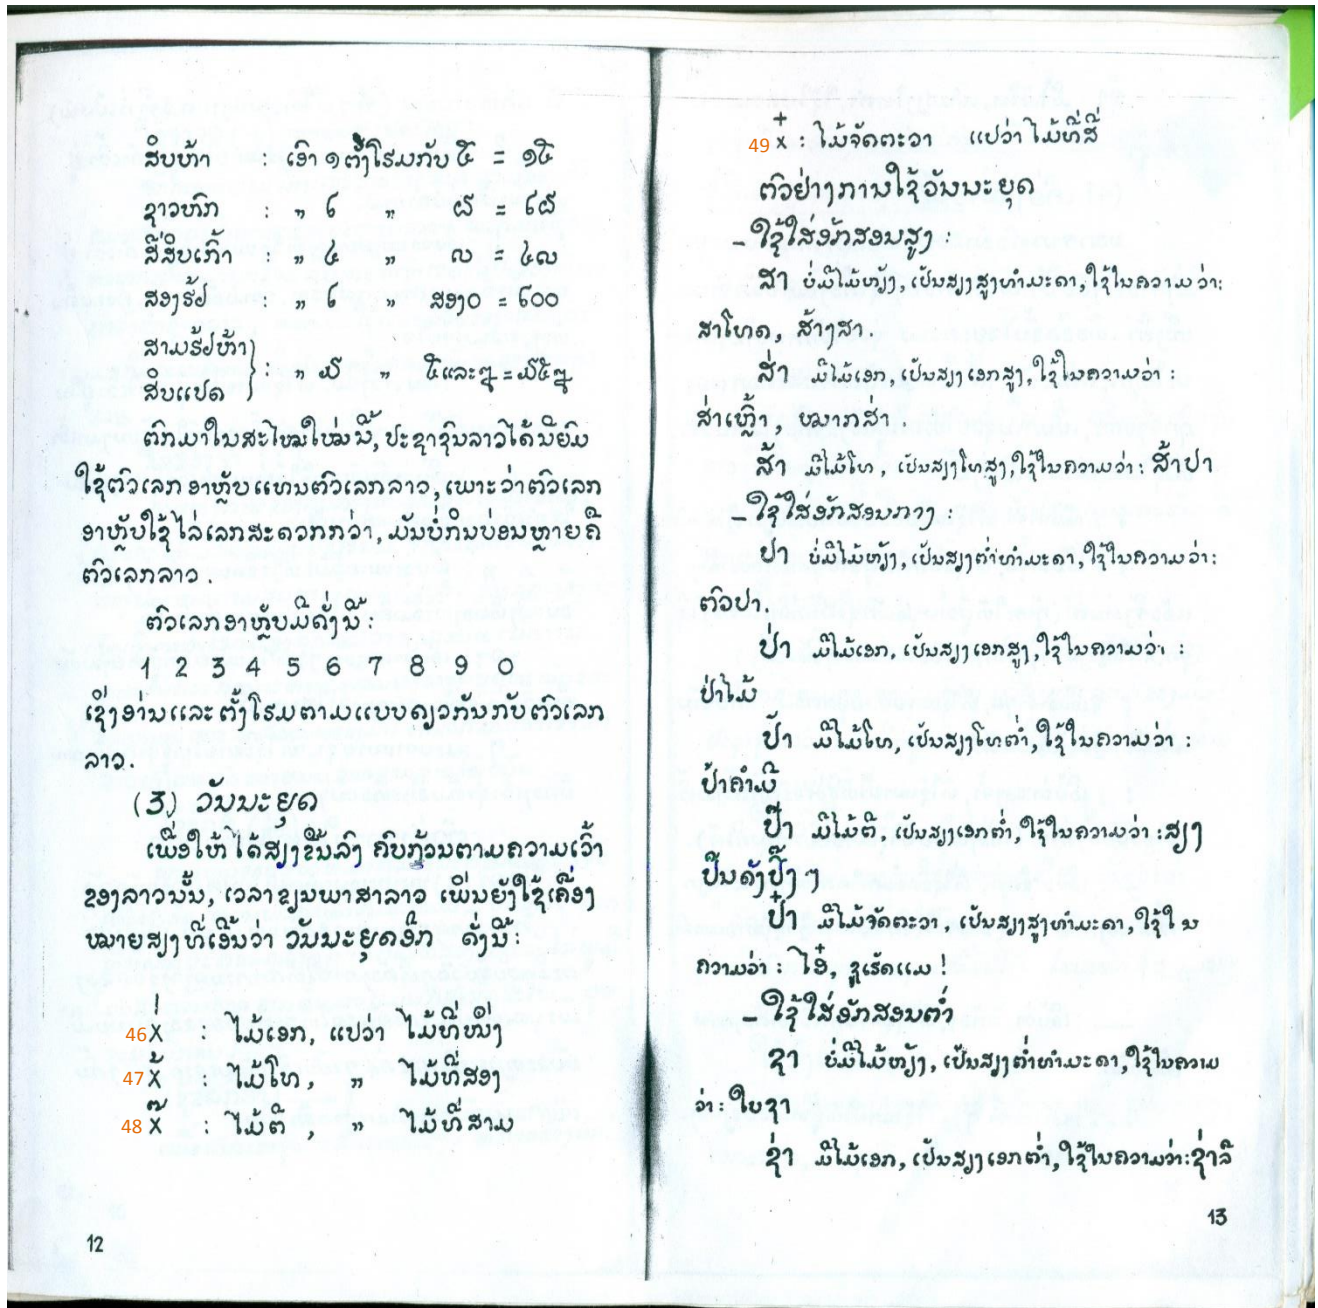 ສິບຫ້າ : ເອົາ ໑ຕັ້ງໂຮມກັບ ໕ = ໑໕
ຊາວຫົກ : „ ໒ „ ໖ = ໒໖
ສີ່ສິບເກົ້າ : „ ໔ „ ໙ = ໔໙
ສອງຮ້ຽ : „ ໒ „ ສອງ໐ = ໒໐໐
ສາມຮ້ຽຫ້າ
ສິບແປດ } : „ ໓ „ ໕ແລະ໘ = ໓໕໘
ຕົກມາໃນສະໄໝໃໝ່ນີ້, ປະຊາຊົນລາວໄດ້ນິຍົມ
ໃຊ້ຕົວເລກອາຫຼັບແທນຕົວເລກລາວ, ເພາະວ່າຕົວເລກ
ອາຫຼັບໃຊ້ໄລ່ເລກສະດວກກວ່າ, ມັນບໍ່ກິນບ່ອນຫຼາຍຄື
ຕົວເລກລາວ .
ຕົວເລກອາຫຼັບມີດັ່ງນີ້ :
1 2 3 4 5 6 7 8 9 0
ເຊິ່ງອ່ານແລະຕັ້ງໂຮມຕາມແບບດຽວກັນກັບຕົວເລກ
ລາວ.
(3) ວັນນະຍຸດ
ເພື່ອໃຫ້ໄດ້ສຽງຂຶ້ນລົງ ຄົບຖ້ວນຕາມຄວາມເວົ້າ
ຂອງລາວນັ້ນ, ເວລາຂຽນພາສາລາວ ເພິ່ນຍັງໃຊ້ເຄື່ອງ
ໝາຍສຽງທີ່ເອີ້ນວ່າ ວັນນະຍຸດອີກ ດັ່ງນີ້ :
46 x່ : ໄມ້ເອກ, ແປວ່າ ໄມ້ທີ່ໜຶ່ງ
47 x້ : ໄມ້ໂທ, „ ໄມ້ທີ່ສອງ
48 x໊ : ໄມ້ຕີ , „ ໄມ້ທີ່ສາມ
12
49 x໋ : ໄມ້ຈັດຕະວາ ແປວ່າ ໄມ້ທີ່ສີ່
ຕົວຢ່າງການໃຊ້ວັນນະຍຸດ
- ໃຊ້ໃສ່ອັກສອນສູງ :
ສາ ບໍ່ມີໄມ້ຫຍັງ, ເປັນສຽງສູງທຳມະດາ, ໃຊ້ໃນຄວາມວ່າ:
ສາໂທດ, ສ້າງສາ.
ສ່າ ມີໄມ້ເອກ, ເປັນສຽງເອກສູງ, ໃຊ້ໃນຄວາມວ່າ :
ສ່າເຫຼົ້າ, ໝາກສ່າ .
ສ້າ ມີໄມ້ໂທ, ເປັນສຽງໂທສູງ, ໃຊ້ໃນຄວາມວ່າ : ສ້າປາ
- ໃຊ້ໃສ່ອັກສອນກາງ :
ປາ ບໍ່ມີໄມ້ຫຍັງ, ເປັນສຽງຕ່ຳທຳມະດາ, ໃຊ້ໃນຄວາມວ່າ:
ຕົວປາ.
ປ່າ ມີໄມ້ເອກ, ເປັນສຽງເອກສູງ, ໃຊ້ໃນຄວາມວ່າ :
ປ່າໄມ້
ປ້າ ມີໄມ້ໂທ, ເປັນສຽງໂທຕ່ຳ, ໃຊ້ໃນຄວາມວ່າ :
ປ້າຄຳມີ
ປ໊າ ມີໄມ້ຕີ, ເປັນສຽງເອກຕ່ຳ, ໃຊ້ໃນຄວາມວ່າ : ສຽງ
ປືນດັງປ໊າງ ໆ
ປ໋າ ມີໄມ້ຈັດຕະວາ, ເປັນສຽງສູງທຳມະດາ, ໃຊ້ໃນ
ຄວາມວ່າ : ໂອ໋, ຊູເຮັດແມ !
- ໃຊ້ໃສ່ອັກສອນຕ່ຳ
ຊາ ບໍ່ມີໄມ້ຫຍັງ, ເປັນສຽງຕ່ຳທຳມະດາ, ໃຊ້ໃນຄວາມ
ວ່າ : ໃບຊາ
ຊ່າ ມີໄມ້ເອກ, ເປັນສຽງເອກຕ່ຳ, ໃຊ້ໃນຄວາມວ່າ: ຊ່າລື
13